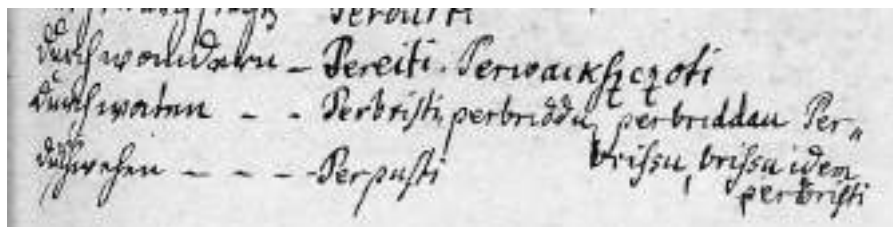 Perdurti
durchwandern – Pereiti. Perwaikszczoti
durchwaten - - Perbristi, perbriddu, perbriddau Per„
brissu, brissu idem
durchwehen - - - - Perpusti
perbristi